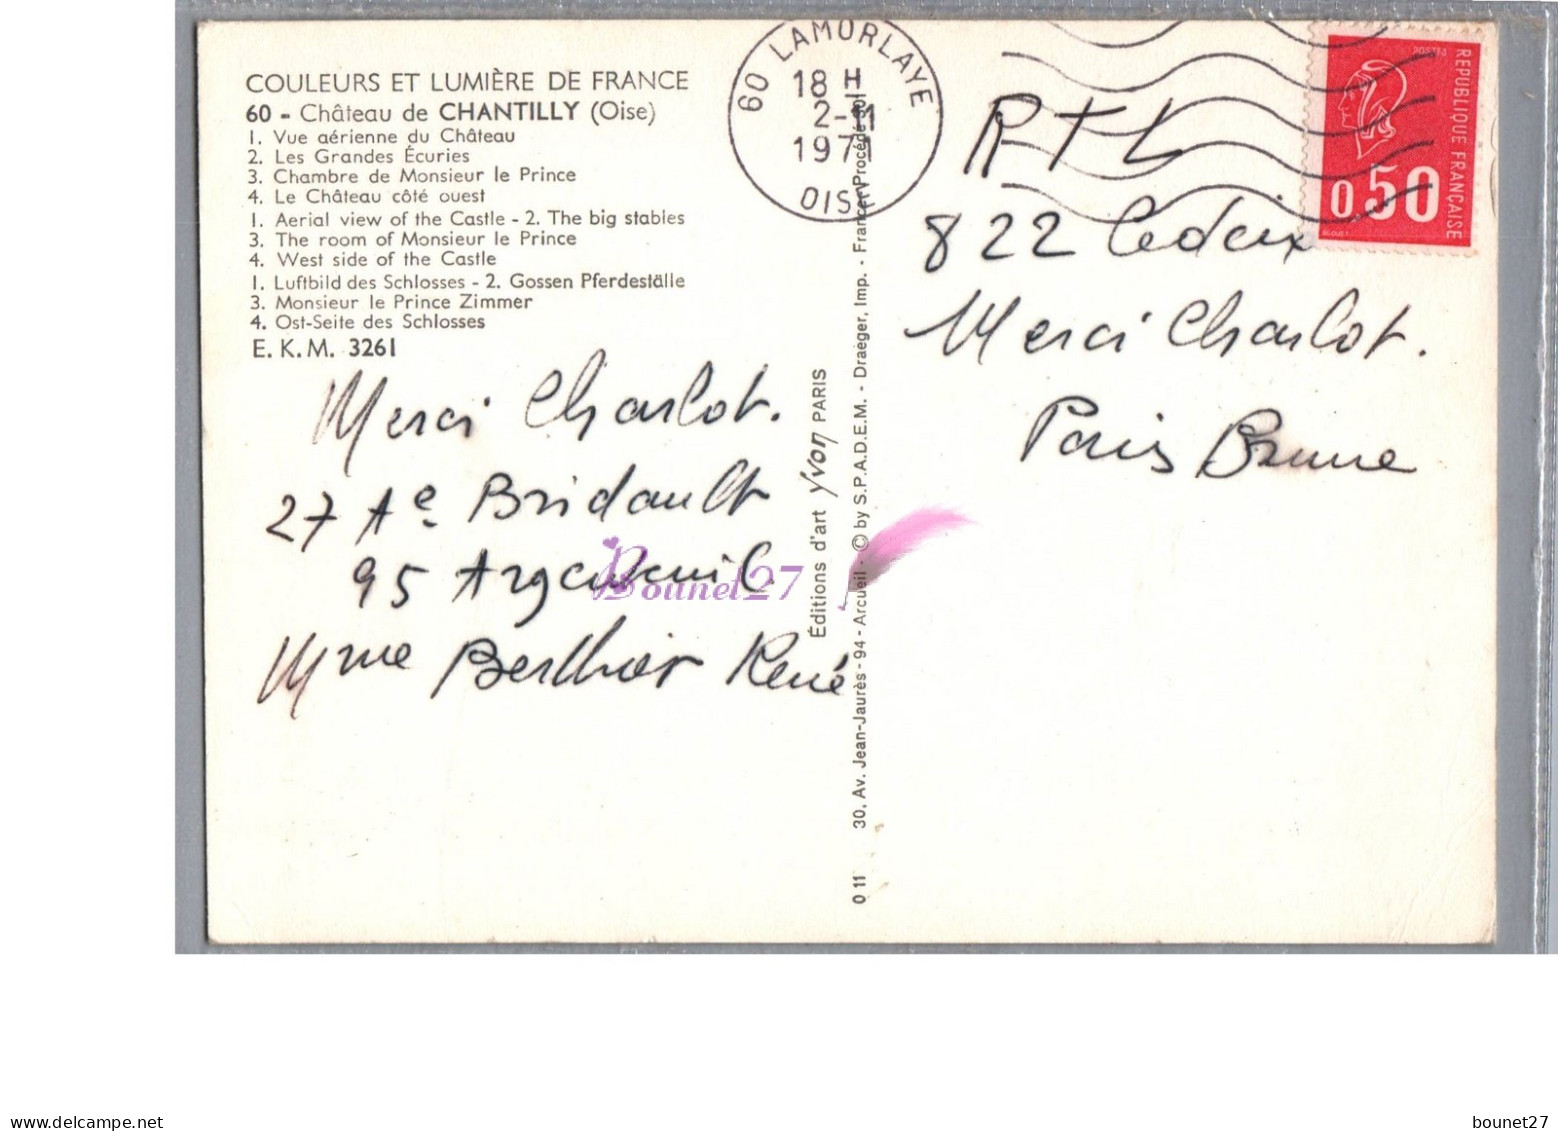 COULEURS ET LUMIÈRE DE FRANCE
60 - Château de CHANTILLY (Oise)
1. Vue aérienne du Château
2. Les Grandes Écuries
3. Chambre de Monsieur le Prince
4. Le Château côté ouest
1. Aerial view of the Castle - 2. The big stables
3. The room of Monsieur le Prince
4. West side of the Castle
1. Luftbild des Schlosses - 2. Gossen Pferdeställe
3. Monsieur le Prince Zimmer
4. Ost-Seite des Schlosses
E. K. M. 3261
Merci Charlot.
27 Ae Bridault
95 Argenteuil
Mme Berthier René
Bounet27
Éditions d'art yvon PARIS
0 11 30, Av. Jean-Jaurès - 94 - Arcueil - © by S.P.A.D.E.M. - Draeger, Imp. - France
60 LAMORLAYE
18 H
2-11
1971
OISE
POSTES
REPUBLIQUE FRANÇAISE
0,50
RTL
822 Cedeix
Merci Charlot.
Paris Brune
bounet27
https://www.delcampe.net